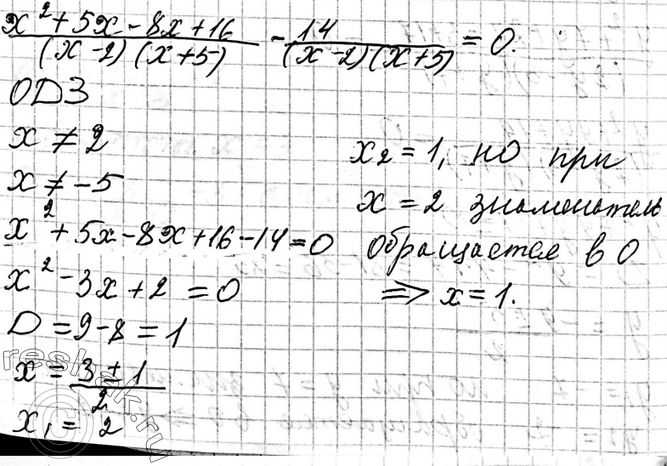 (x² + 5x - 8x + 16)/((x - 2)(x + 5)) - 14/((x - 2)(x + 5)) = 0
ОДЗ
x ≠ 2
x ≠ -5
x² + 5x - 8x + 16 - 14 = 0
x² - 3x + 2 = 0
D = 9 - 8 = 1
x = (3 ± 1)/2
x₁ = 2
x₂ = 1, но при
x = 2 знаменатель
обращается в 0
⇒ x = 1.
reshak.ru